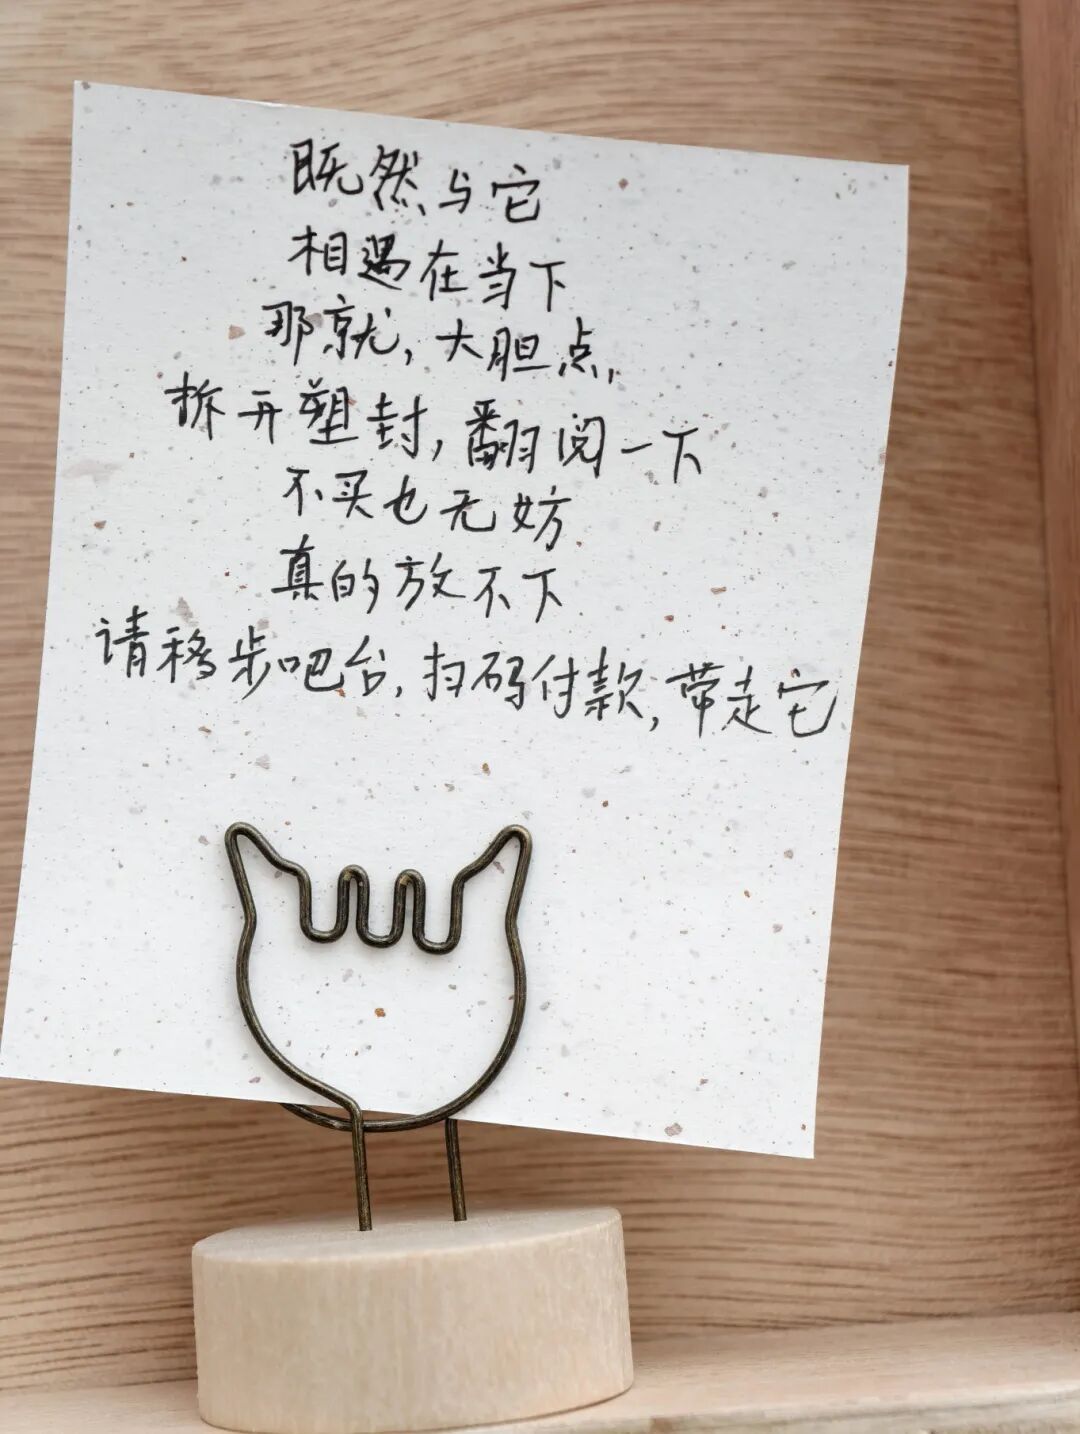 既然与它
相遇在当下
那就，大胆点，
拆开塑封，翻阅一下
不买也无妨
真的放不下
请移步吧台，扫码付款，带走它